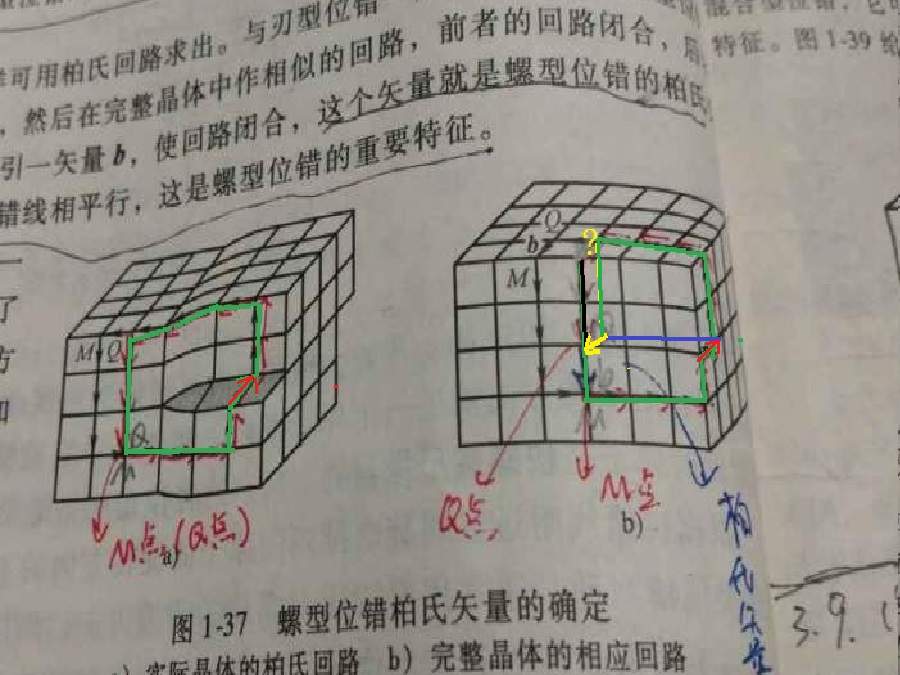 可用柏氏回路求出。与刃型位错
，然后在完整晶体中作相似的回路，前者的回路闭合，
特征。图1-39
引一矢量b，使回路闭合，这个矢量就是螺型位错的柏氏
错线相平行，这是螺型位错的重要特征。
了
方
如
M Q
Q
M
M点(Q点)
a)
Q
b
?
M
Q
M
Q点
M点
b)
柏氏矢量
3.9.
图1-37 螺型位错柏氏矢量的确定
a) 实际晶体的柏氏回路 b) 完整晶体的相应回路